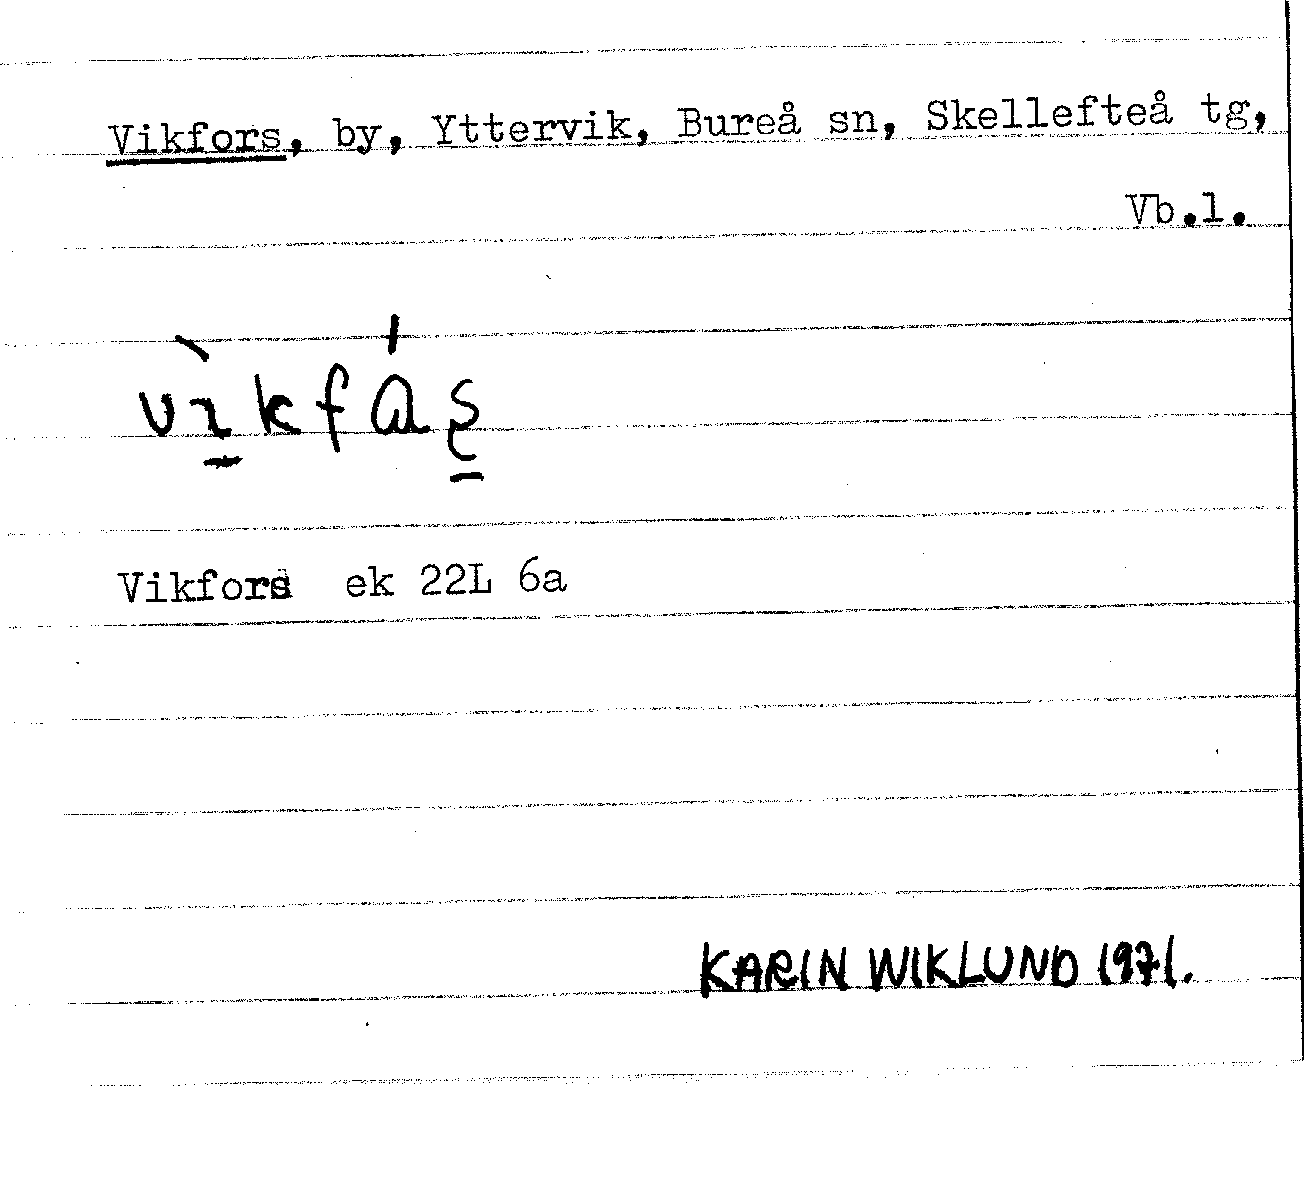 Vikfors, by, Yttervik, Bureå sn, Skellefteå tg,
Vb.l.
Vikfors ek 22L 6a
KARIN WIKLUND 1971.